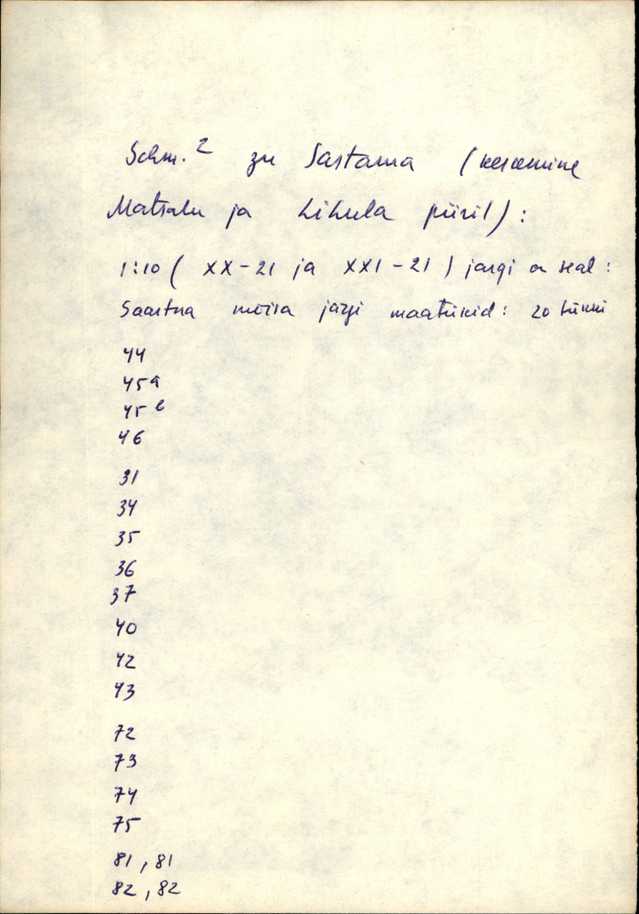 Schm.² zu Sastama (keskmine
Matsalu ja Lihula piiril):
1:10 ( XX-21 ja XXI-21 ) järgi on seal:
Saastna mõisa järgi maatükid: 20 tükki
44
45a
45b
46
31
34
35
36
37
40
42
43
72
73
74
75
81, 81
82, 82